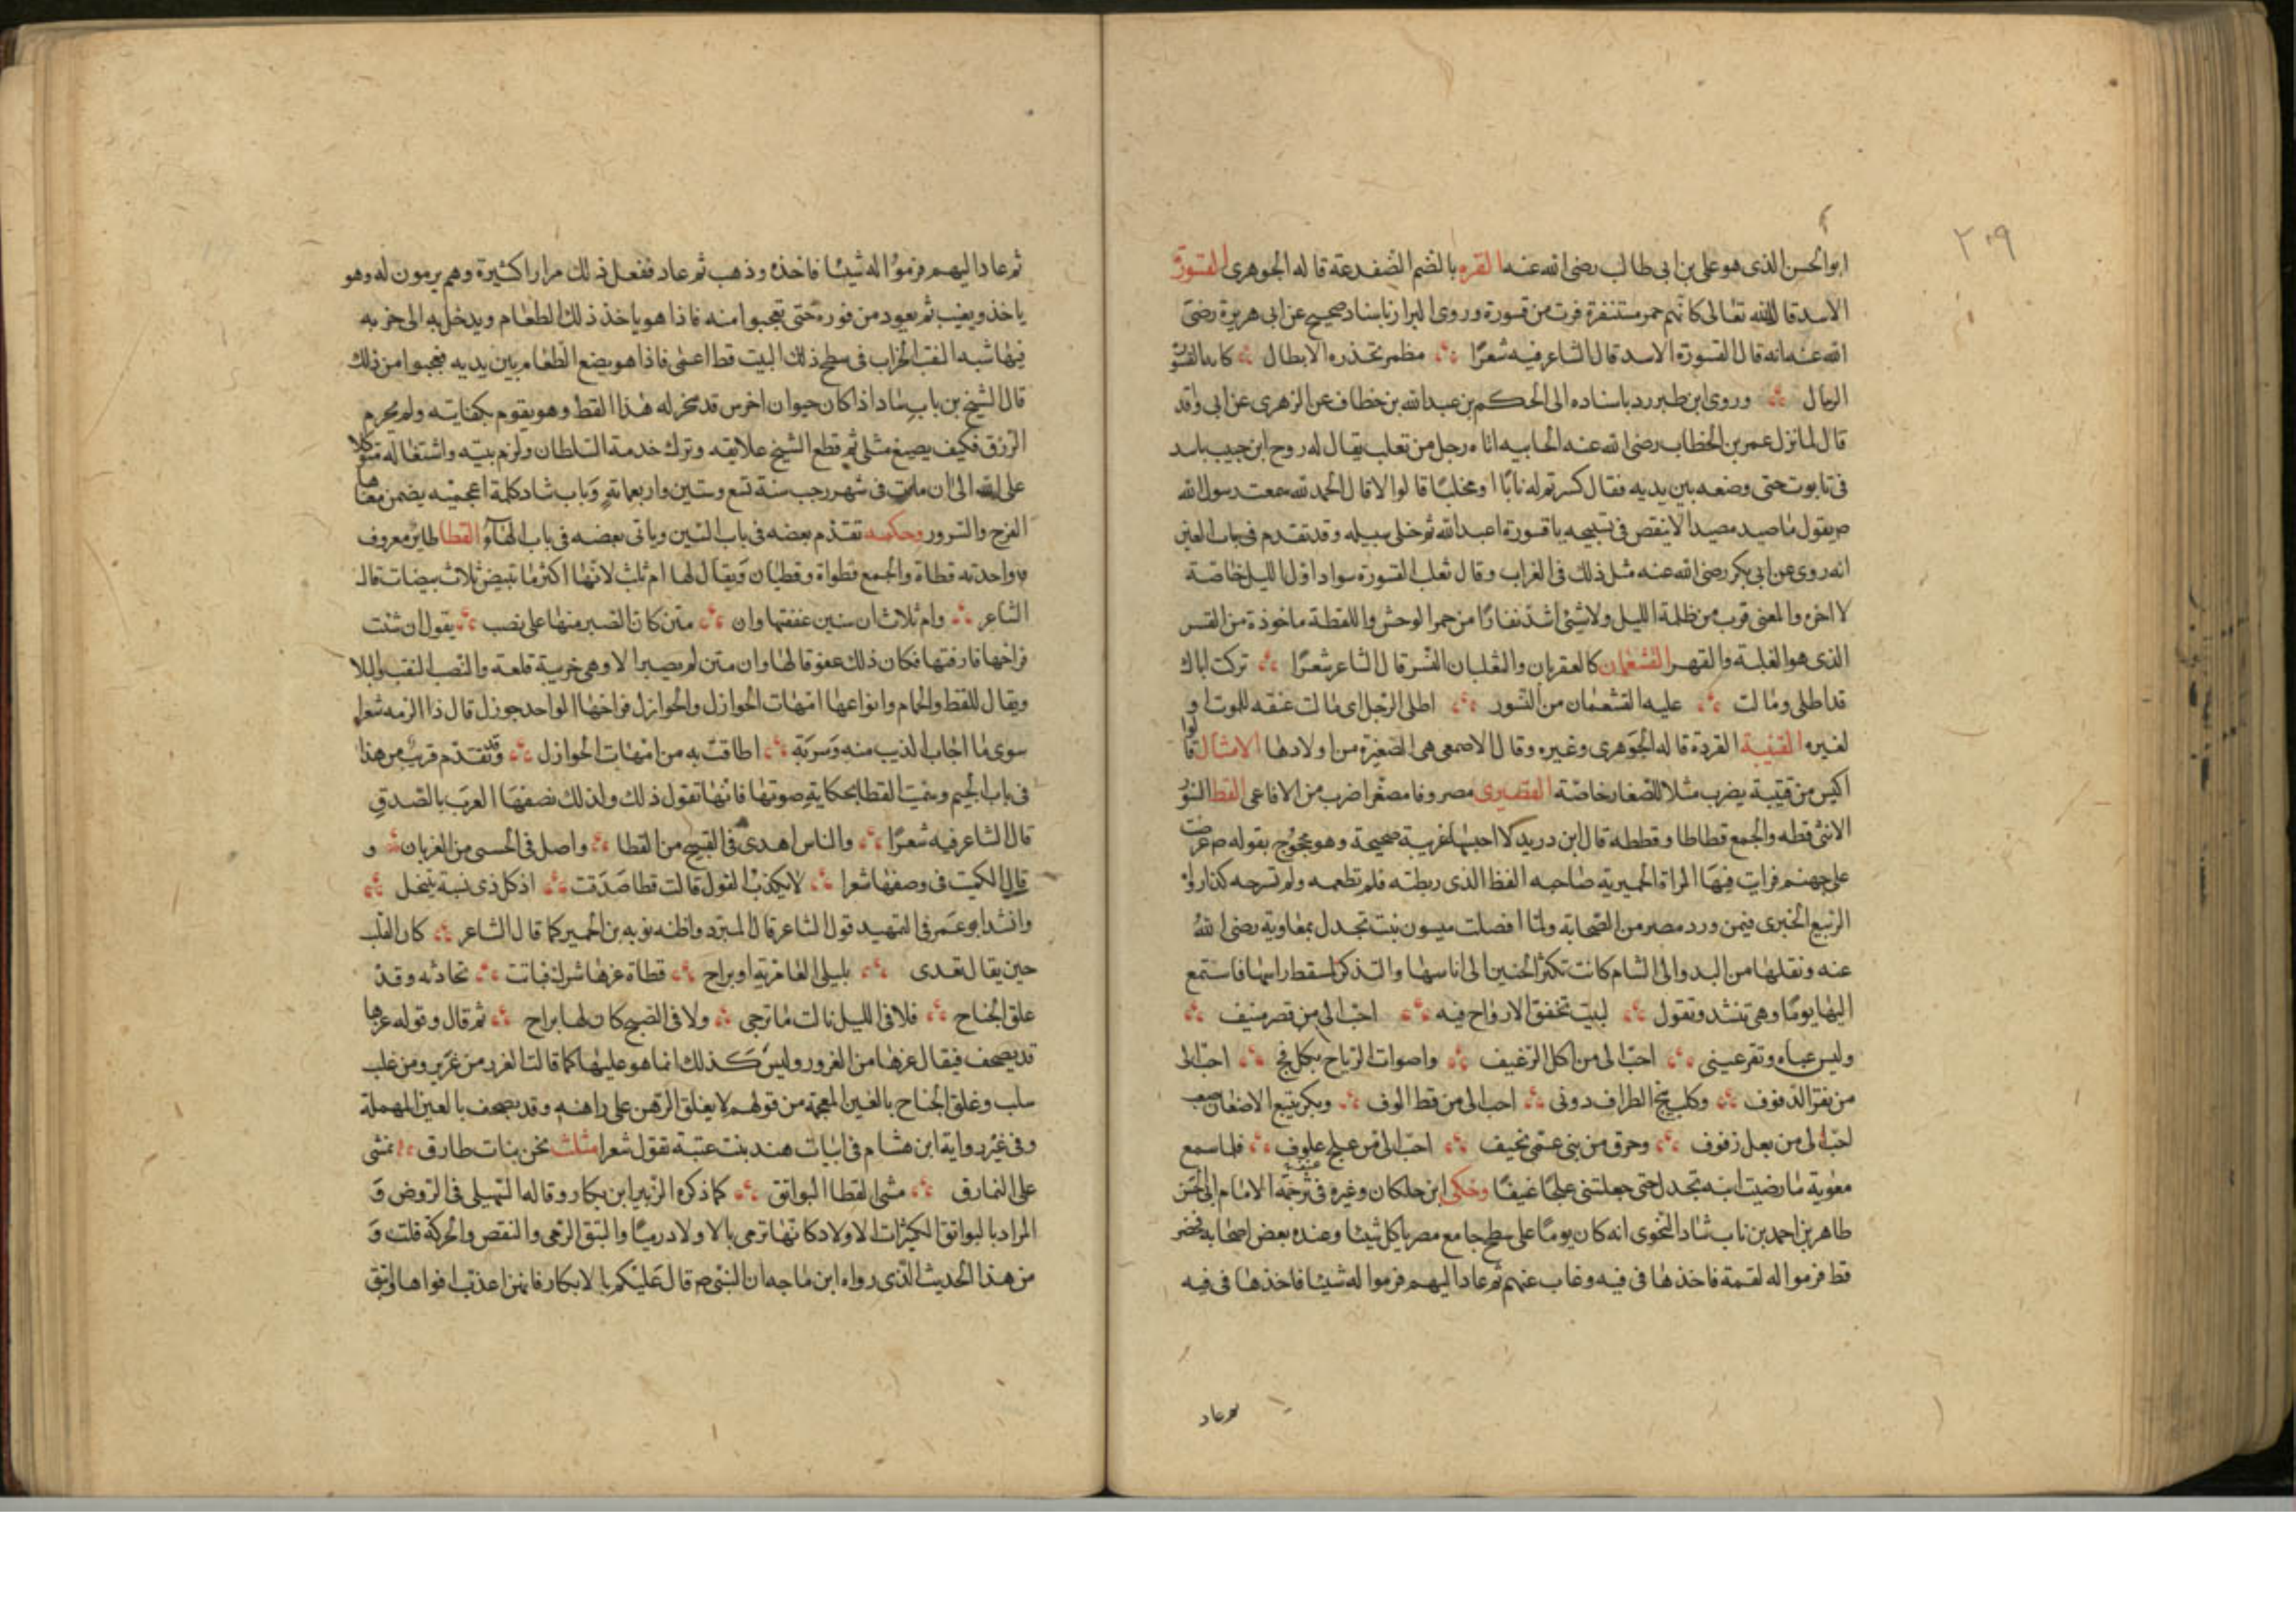 ٢٠٩
ابو الحسن الذى هو على بن ابى طالب رضى الله عنه القره بالضم الضفدعة قاله الجوهرى القسورة
الاسد قال الله تعالى كانهم حمر مستنفرة فرت من قسورة وروى البزار باسناد صحيح عن ابى هريرة رضى
الله عنه انه قال القسورة الاسد قال الشاعر فيه شعرًا مظمر تحذره الابطال كانه القسور
الرمال وروى ابن طبرزد باسناده الى الحكم بن عبد الله بن خطاف عن الزهرى عن ابى واقد
قال لما نزل عمر بن الخطاب رضى الله عنه الجابيه اتاه رجل من تعلب يقال له روح ابن حبيب باسد
فى تابوت حتى وضعه بين يديه فقال كسرتم له نابًا او مخلبًا قالوا لا قال الحمد لله سمعت رسول الله
ص يقول ما صيد مصيد الا بنقص فى تسبيحه يا قسورة اعبد الله ثم خلى سبيله وقد تقدم فى باب الغين
انه روى عن ابى بكر رضى الله عنه مثل ذلك فى الغراب وقال ثعلب القسورة سواد اول الليل خاصة
لا اخره والمعنى فرت من ظلمة الليل ولا شئ اشد نفارًا من حمر الوحش واللفظة ماخوذة من القسر
الذى هو الغلبة والقهر القشعمان كالعقربان والثعلبان النسر قال الشاعر شعرًا تركت اباك
قد اطلى ومالت عليه القشعمان من النسور اطلى الرجل اى مالت عنقه للموت او
لغيره القشبة القردة قاله الجوهرى وغيره وقال الاصمعى هى الصغيرة من اولادها الامثال قالوا
اكيس من قشبة يضرب مثلا للصغار خاصة القصيرى مصروفا مصغرا ضرب من الافاعى القط السنور
الانثى قطه والجمع قطاطا وقططه قال ابن دريد لا احبها غريبة صحيحة وهو محجوج بقوله ص عرضت
على جهنم فرايت فيها المراة الحميرية صاحبه القط الذى ربطته فلم تطعمه ولم تسرحه كذا رواه
الربيع الخبرى فيمن ورد مصر من الصحابة ولما افصلت ميسون بنت تجدل بمعاوية رضى الله
عنه ونقلها من البدو الى الشام كانت تكثر الحنين الى اناسها والتذكر لمسقط راسها فاستمع
اليها يومًا وهى تنشد وتقول لبيت تخفق الارواح فيه احب الى من قصر منيف
ولبس عباه وتقر عينى احب الى من اكل الرغيف واصوات الرياح بكل فج احب الى
من نقر الدفوف وكلب ينبح الطراف دونى احب الى من قط الوف وبكر يتبع الاضعان صعب
احب الى من بغل زفوف وخرق من بنى عمى نحيف احب الى من علج علوف فلما سمع
معوية ما رضيت ابنه تجدل حتى جعلتنى علجًا عنيفًا وحكى ابن خلكان وغيره فى ترجمة الامام ابى الحسن
طاهر بن احمد بن باب شاد النحوى انه كان يومًا على سطح جامع مصر ياكل شيئا وعنده بعض اصحابه فحضر
قط فرموا له لقمة فاخذها فى فيه وغاب عنهم ثم عاد اليهم فرموا له شيئا فاخذها فى فيه
ثم عاد
ثم عاد اليهم فرموا له شيئا فاخذه وذهب ثم عاد ففعل ذلك مرارا كثيرة وهم يرمون له وهو
ياخذ ويغيب ثم يعود من فوره حتى تعجبوا منه فاذا هو ياخذ ذلك الطعام ويدخل به الى خربه
فيها شبه النقب الخراب فى سطح ذلك البيت قط اعمى فاذا هو يضع الطعام بين يديه فعجبوا من ذلك
قال الشيخ بن باب شاد اذا كان حيوان اخرس قد سخر له هذا القط وهو يقوم بكفايته ولم يحرم
الرزق فكيف يضيع مثلى ثم قطع الشيخ علايقه وترك خدمة السلطان ولزم بيته واشتغاله متوكلا
على الله الى ان مات فى شهر رجب سنة تسع وستين واربعمائة وباب شاد كلمة اعجميه يضمن معناها
الفرح والسرور وحكمه تقدم بعضه فى باب السين وياتى بعضه فى باب الهاء القطا طاير معروف
واحدته قطاة والجمع قطواة وقطيان ويقال لها ام ثلث لانها اكثر ما تبيض ثلاث بيضات قال
الشاعر وام ثلاث ان سنين عققتها وان متن كان الصبر منها على نصب يقول ان شئت
فراخها فارقتها فكان ذلك عقوقا لها وان متن لم يصبر الا وهى خريبة قلعة والنصب التعب والبلا
ويقال للقط والحمام وانواعها امهات الجوازل والجوازل فراخها الواحد جوزل قال ذا الرمه شعرا
سوى ما اجاب الذيب منه وسربة اطافت به من امهات الجوازل وقد تقدم قريب من هذا
فى باب الجيم وسميت القطا بحكاية صوتها فانها تقول ذلك ولذلك تصفها العرب بالصدق
قال الشاعر فيه شعرًا والناس اهدى فى القبيح من القطا واصل فى الحسنى من الغربان و
قال الكميت فى وصفها شعرا لا يكذب القول قالت قطا صدقت اذ كل ذى نسبة ينتحل
وانشد ابو عمر فى التمهيد قول الشاعر قال المبرد واظنه توبه بن الحمير كما قال الشاعر كان القلب
حين يقال تغدى بليلى العامرية او براح قطاة غرها شرك فباتت تحاذثه وقد
علق الجناح فلا فى الليل نالت ما ترجى ولا فى الصبح كان لها براح ثم قال وقوله غرها
قد يصحف فيقال غرها من الغرور وليس كذلك انما هو عليها كما قالت الغرد من غرير ومن غلب
سلب وغلق الجناح بالغين المعجمة من قولهم لا يغلق الرهن على راهنه وقد يصحف بالعين المهملة
وفى غير رواية ابن هشام فى ابيات هند بنت عتبة تقول شعرا مثلث نحن بنات طارق نمشى
على النمارق مشى القطا البواتق كما ذكره الزبير ابن بكار وقاله السهيلى فى الروض و
المراد بالبواتق الكثيرات الاولاد كانها ترمى بالاولاد رميًا والنتق الرمى والنفض والحركة قلت و
من هذا الحديث الذى رواه ابن ماجه ان النبى ص قال عليكم بالابكار فانهن اعذب افواها وانتق